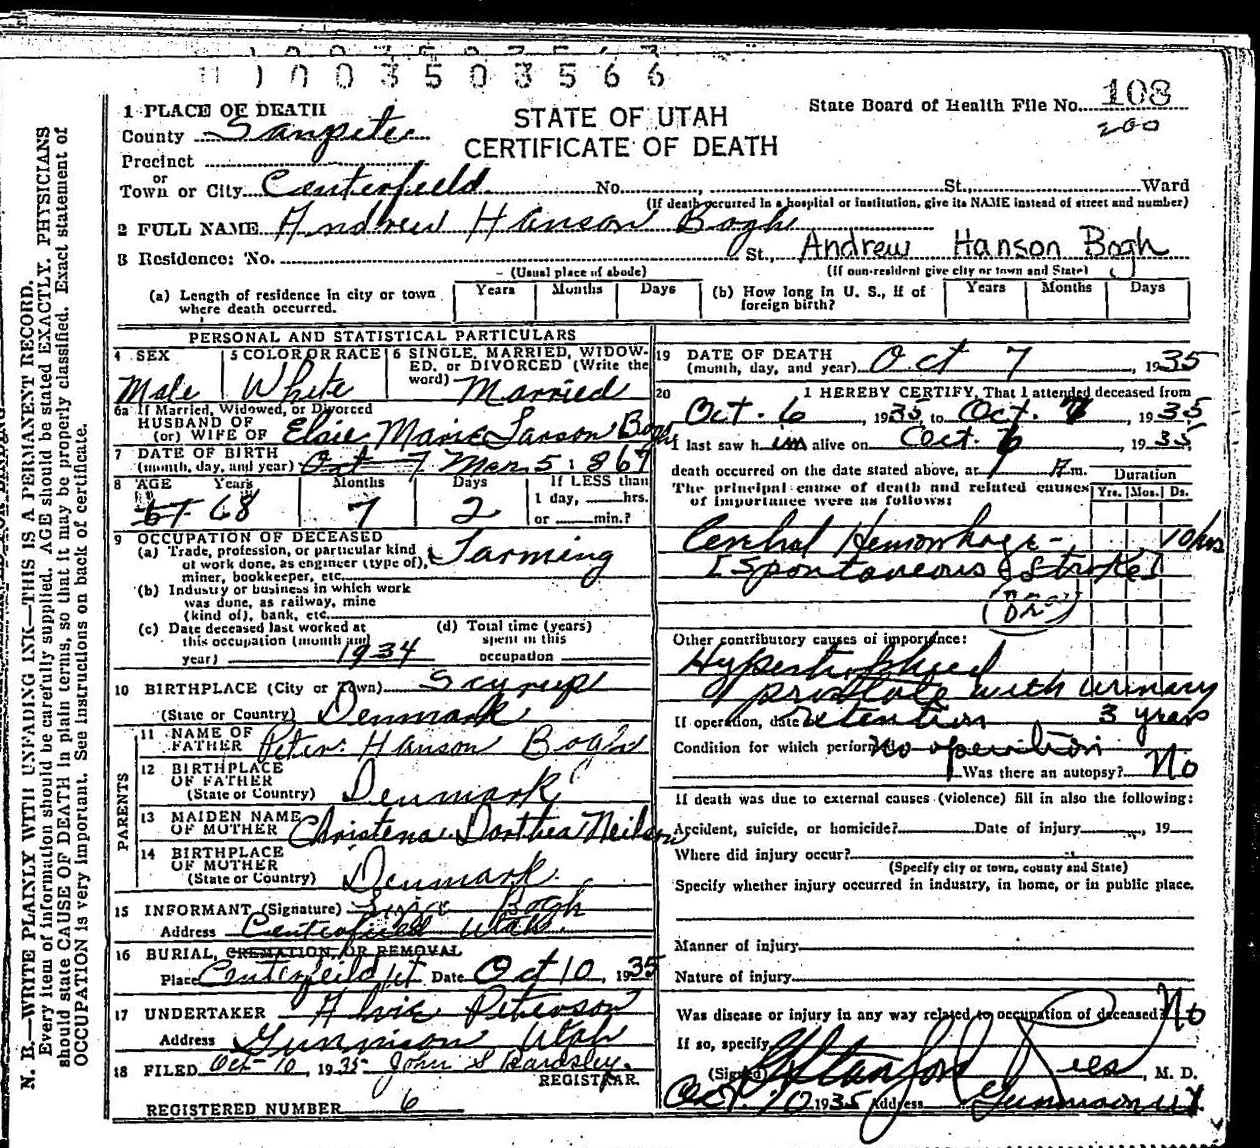 1003503566
1 PLACE OF DEATH
STATE OF UTAH
CERTIFICATE OF DEATH
State Board of Health File No. 108
200
County Sanpete
Precinct
or
Town or City Centerfield No. , St., Ward
(If death occurred in a hospital or institution, give its NAME instead of street and number)
2 FULL NAME Andrew Hanson Bogh
3 Residence: No. St., Andrew Hanson Bogh
(Usual place of abode) (If non-resident give city or town and State)
(a) Length of residence in city or town where death occurred. Years Months Days
(b) How long in U. S., if of foreign birth? Years Months Days
PERSONAL AND STATISTICAL PARTICULARS
4 SEX Male
5 COLOR OR RACE White
6 SINGLE, MARRIED, WIDOWED, or DIVORCED (Write the word) Married
6a If Married, Widowed, or Divorced
HUSBAND OF
(or) WIFE OF Elsie Marie Larson Bogh
7 DATE OF BIRTH
(month, day, and year) Oct 7 Mar 5 1867
8 AGE Years Months Days If LESS than
1 day, hrs.
or min.?
67 68 7 2
9 OCCUPATION OF DECEASED
(a) Trade, profession, or particular kind of work done, as engineer (type of), miner, bookkeeper, etc. Farming
(b) Industry or business in which work was done, as railway, mine (kind of), bank, etc.
(c) Date deceased last worked at this occupation (month and year) 1934
(d) Total time (years) spent in this occupation
10 BIRTHPLACE (City or Town)
(State or Country) Denmark
PARENTS
11 NAME OF FATHER Peter Hanson Bogh
12 BIRTHPLACE OF FATHER
(State or Country) Denmark
13 MAIDEN NAME OF MOTHER Christena Dorthea Neilson
14 BIRTHPLACE OF MOTHER
(State or Country) Denmark
15 INFORMANT (Signature) Bogh
Address Centerfield Utah.
16 BURIAL, CREMATION, OR REMOVAL
Place Centerfeild Ut Date Oct 10, 1935
17 UNDERTAKER Peterson
Address Gunnison Utah
18 FILED Oct-10, 1935 John S Bardsley.
REGISTRAR.
REGISTERED NUMBER 6
19 DATE OF DEATH
(month, day, and year) Oct 7, 1935
20 I HEREBY CERTIFY, That I attended deceased from
Oct. 6, 1935 to Oct. 7, 1935
I last saw him alive on Oct. 6, 1935
death occurred on the date stated above, at 1 A.m.
The principal cause of death and related causes of importance were as follows:
Duration
Yrs. Mos. Ds.
Cerebral Hemorrhage- 10 hrs
[Spontaneous Stroke]
Other contributory causes of importance:
Hypertrophied
prostate with urinary
retention 3 years
If operation, date of
Condition for which performed no operation
Was there an autopsy? No
If death was due to external causes (violence) fill in also the following:
Accident, suicide, or homicide? Date of injury , 19
Where did injury occur?
(Specify city or town, county and State)
Specify whether injury occurred in industry, in home, or in public place.
Manner of injury
Nature of injury
Was disease or injury in any way related to occupation of deceased? No
If so, specify
(Signed) G Stanford Rees, M. D.
Oct. 10 1935 Address Gunnison Ut
N. B.—WRITE PLAINLY WITH UNFADING INK—THIS IS A PERMANENT RECORD.
Every item of information should be carefully supplied. AGE should be stated EXACTLY. PHYSICIANS
should state CAUSE OF DEATH in plain terms, so that it may be properly classified. Exact statement of
OCCUPATION is very important. See instructions on back of certificate.